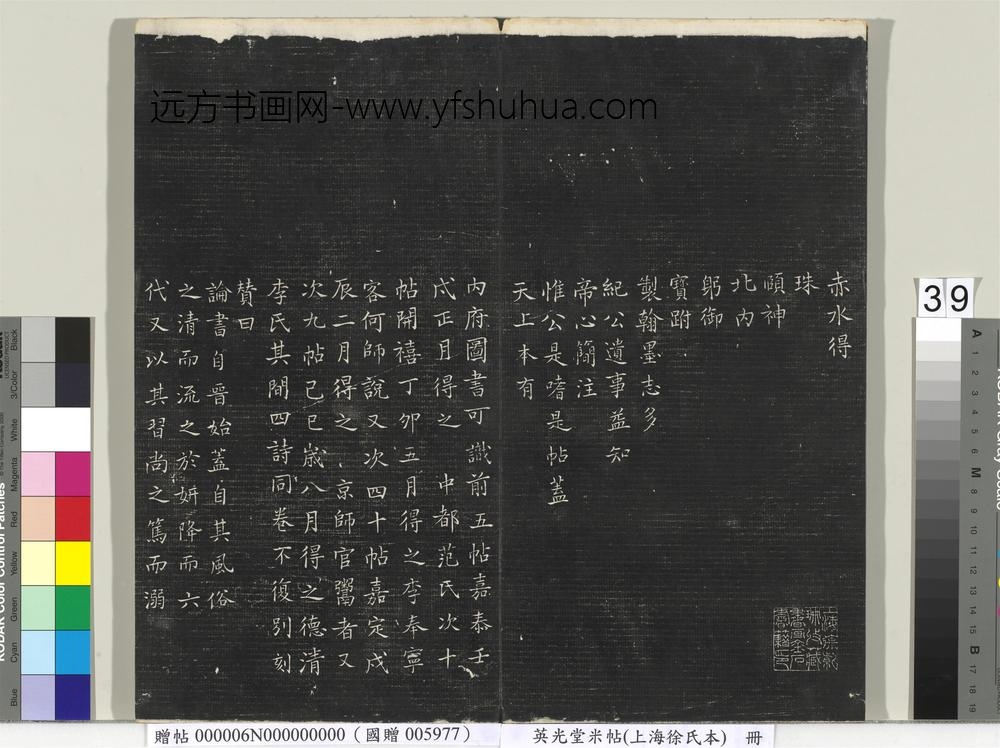 远方书画网-www.yfshuhua.com
赤水得
珠
頤神
北內
躬御
寶跗
製翰墨志多
紀公遺事益知
帝心簡注
惟公是嗜是帖蓋
天上本有
內府圖書可識前五帖嘉泰壬
戌正月得之 中都范氏次十
帖開禧丁卯五月得之李奉寧
客何師說又次四十帖嘉定戊
辰二月得之 京師官鬻者又
次九帖己巳歲八月得之德清
李氏其間四詩同卷不復別刻
贊曰
論書自晉始蓋自其風俗
之清而流之於妍降而六
代又以其習尚之篤而溺
39
贈帖 000006N000000000（國贈 005977）
英光堂米帖(上海徐氏本) 冊
KODAK Color Control Patches
Blue
Cyan
Green
Yellow
Red
Magenta
White
3/Color
Black
A
1
2
3
4
5
6
M
8
9
10
11
12
13
14
15
B
17
18
19